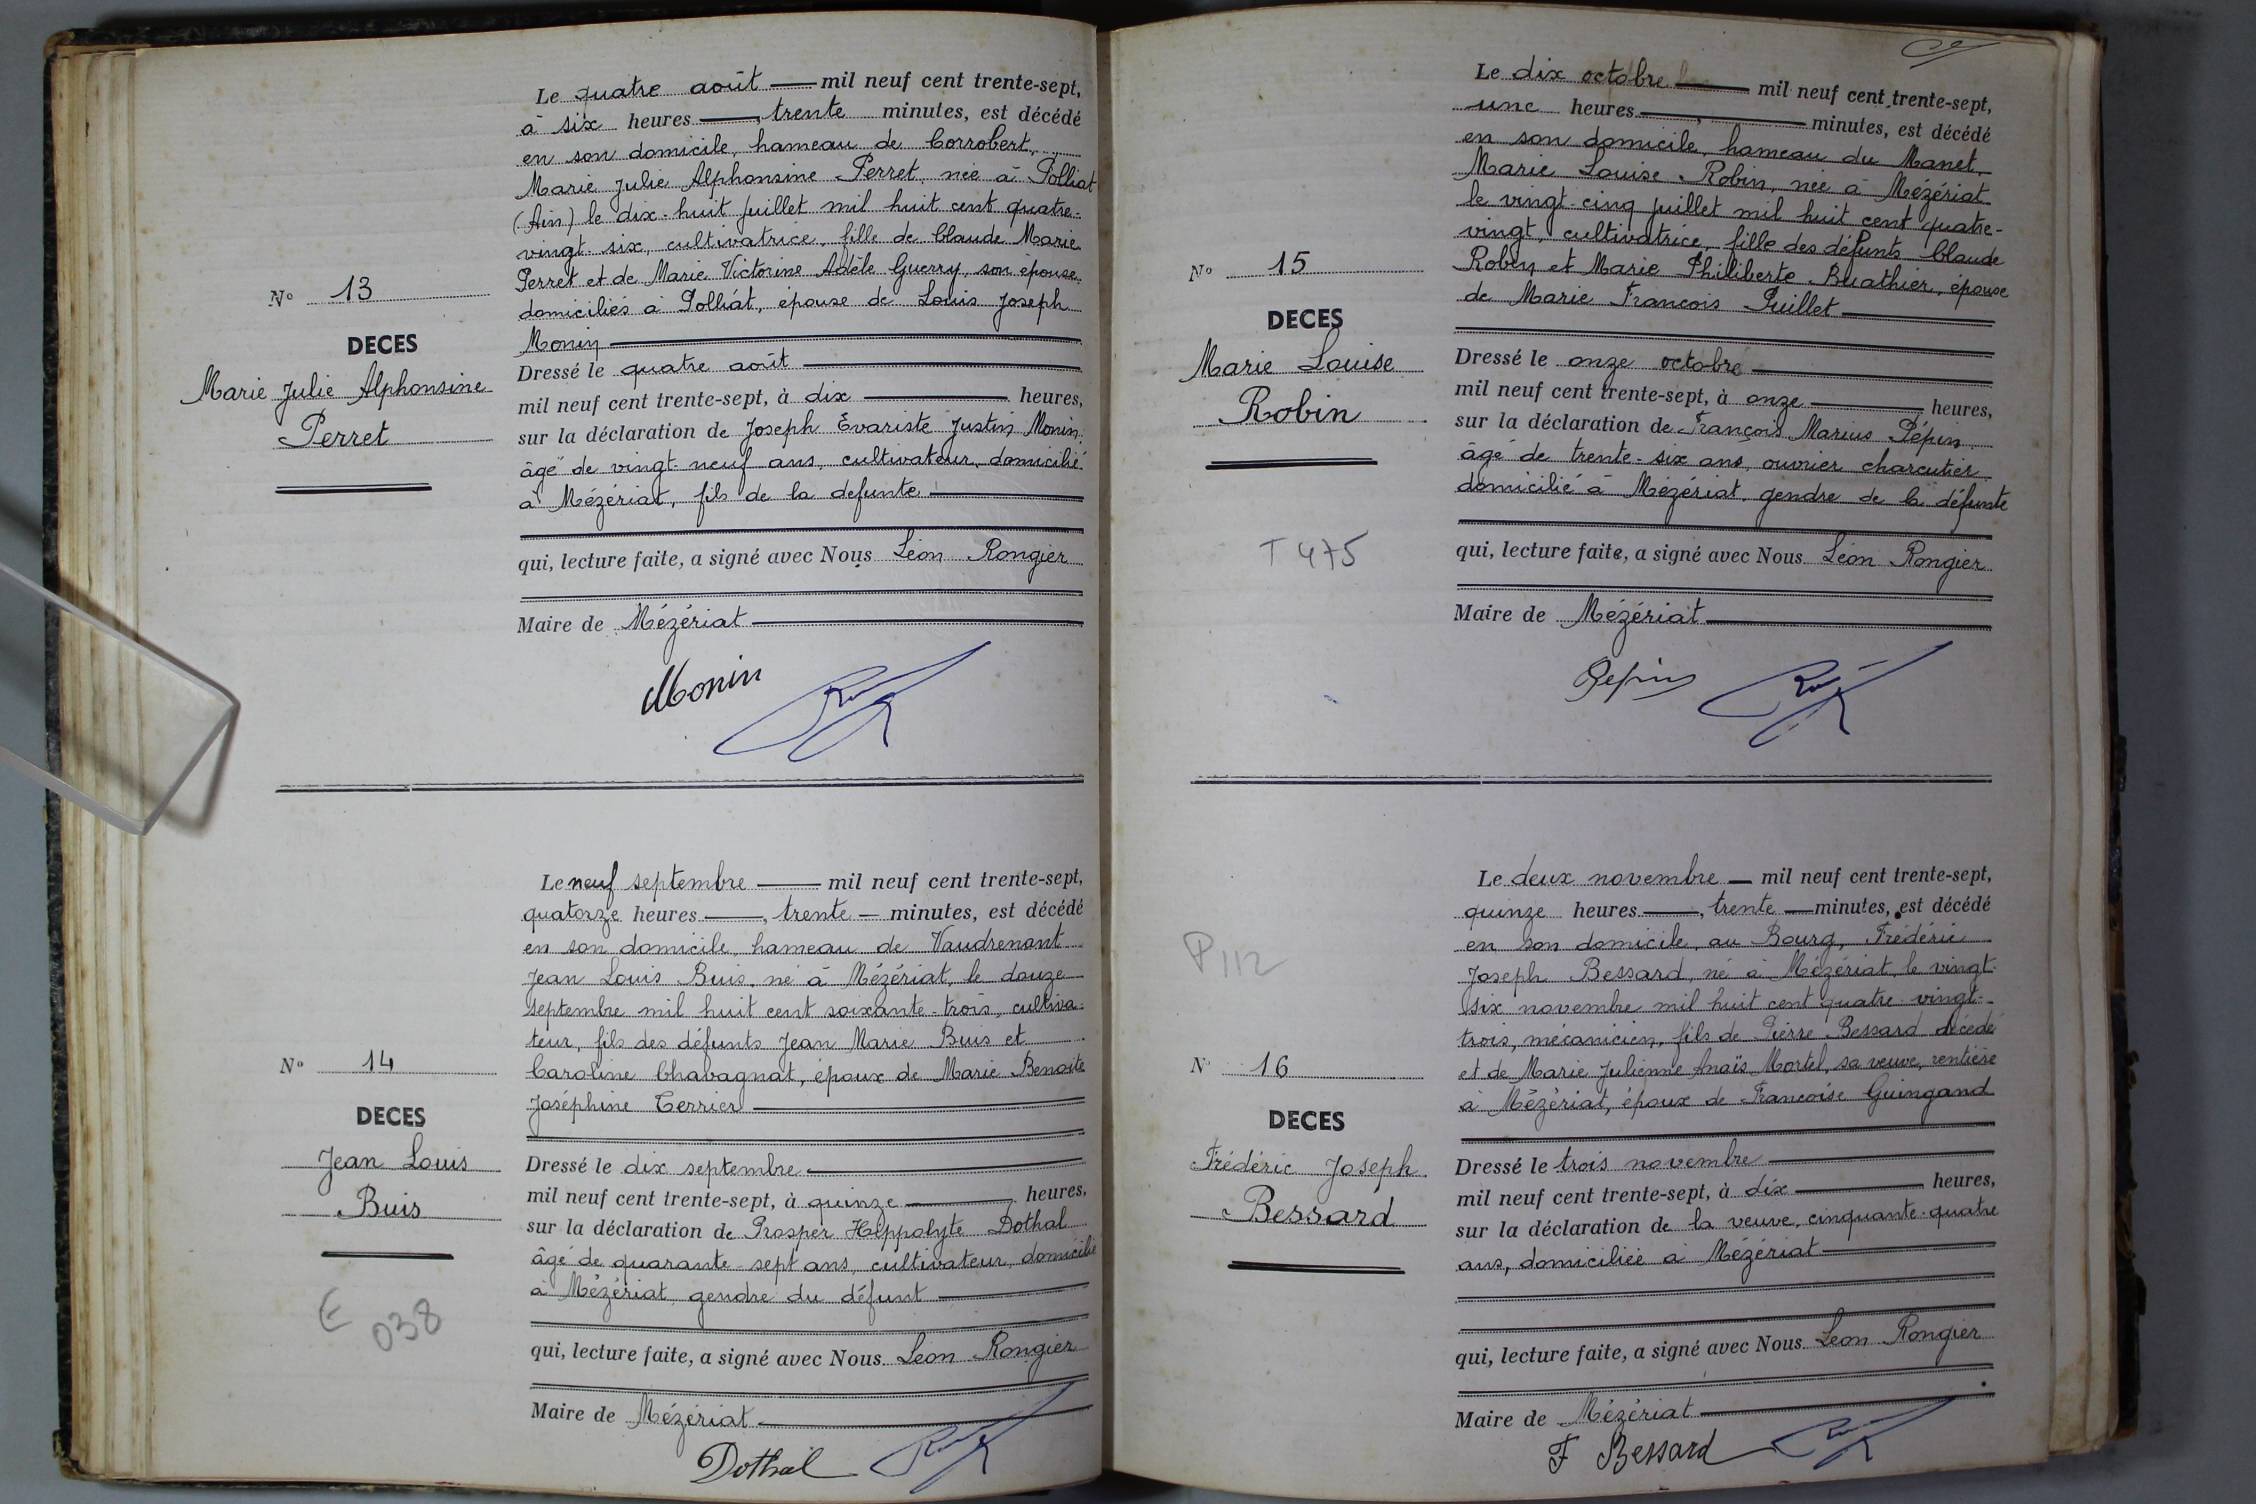 N° 13
DECES
Marie Julie Alphonsine
Perret
Le quatre août mil neuf cent trente-sept,
à six heures, trente minutes, est décédé
en son domicile, hameau de Corrobert,
Marie Julie Alphonsine Perret, née à Polliat
(Ain) le dix-huit juillet mil huit cent quatre-
vingt-six, cultivatrice, fille de Claude Marie
Perret et de Marie Victorine Adèle Guerry, son épouse
domiciliés à Polliat, épouse de Louis Joseph
Monin
Dressé le quatre août
mil neuf cent trente-sept, à dix heures,
sur la déclaration de Joseph Evariste Justin Monin
âgé de vingt-neuf ans, cultivateur, domicilié
à Mézériat, fils de la defunte
qui, lecture faite, a signé avec Nous Léon Rongier
Maire de Mézériat
Monin
N° 14
DECES
Jean Louis
Buis
E 038
Le neuf septembre mil neuf cent trente-sept,
quatorze heures, trente minutes, est décédé
en son domicile, hameau de Vaudrenant
Jean Louis Buis, né à Mézériat, le douze
septembre mil huit cent soixante-trois, cultiva-
teur, fils des défunts Jean Marie Buis et
Caroline Chavagnat, époux de Marie Benoite
Joséphine Terrier
Dressé le dix septembre
mil neuf cent trente-sept, à quinze heures,
sur la déclaration de Prosper Hippolyte Dothal
âgé de quarante-sept ans, cultivateur, domicilié
à Mézériat, gendre du défunt
qui, lecture faite, a signé avec Nous Léon Rongier
Maire de Mézériat
Dothal
N° 15
DECES
Marie Louise
Robin
T 475
Le dix octobre mil neuf cent trente-sept,
une heures, minutes, est décédé
en son domicile, hameau du Manet,
Marie Louise Robin, née à Mézériat
le vingt-cinq juillet mil huit cent quatre-
vingt, cultivatrice, fille des défunts Claude
Robin et Marie Philiberte Buathier, épouse
de Marie François Puillet
Dressé le onze octobre
mil neuf cent trente-sept, à onze heures,
sur la déclaration de François Marius Pépin
âgé de trente-six ans, ouvrier charcutier
domicilié à Mézériat, gendre de la défunte
qui, lecture faite, a signé avec Nous Léon Rongier
Maire de Mézériat
Pepin
P 112
N° 16
DECES
Frédéric Joseph
Bessard
Le deux novembre mil neuf cent trente-sept,
quinze heures, trente minutes, est décédé
en son domicile, au Bourg, Frédéric
Joseph Bessard, né à Mézériat, le vingt-
six novembre mil huit cent quatre-vingt-
trois, mécanicien, fils de Pierre Bessard décédé
et de Marie Julienne Anaïs Mortel, sa veuve, rentière
à Mézériat, époux de Françoise Guingand
Dressé le trois novembre
mil neuf cent trente-sept, à dix heures,
sur la déclaration de la veuve, cinquante-quatre
ans, domiciliée à Mézériat
qui, lecture faite, a signé avec Nous Léon Rongier
Maire de Mézériat
F Bessard